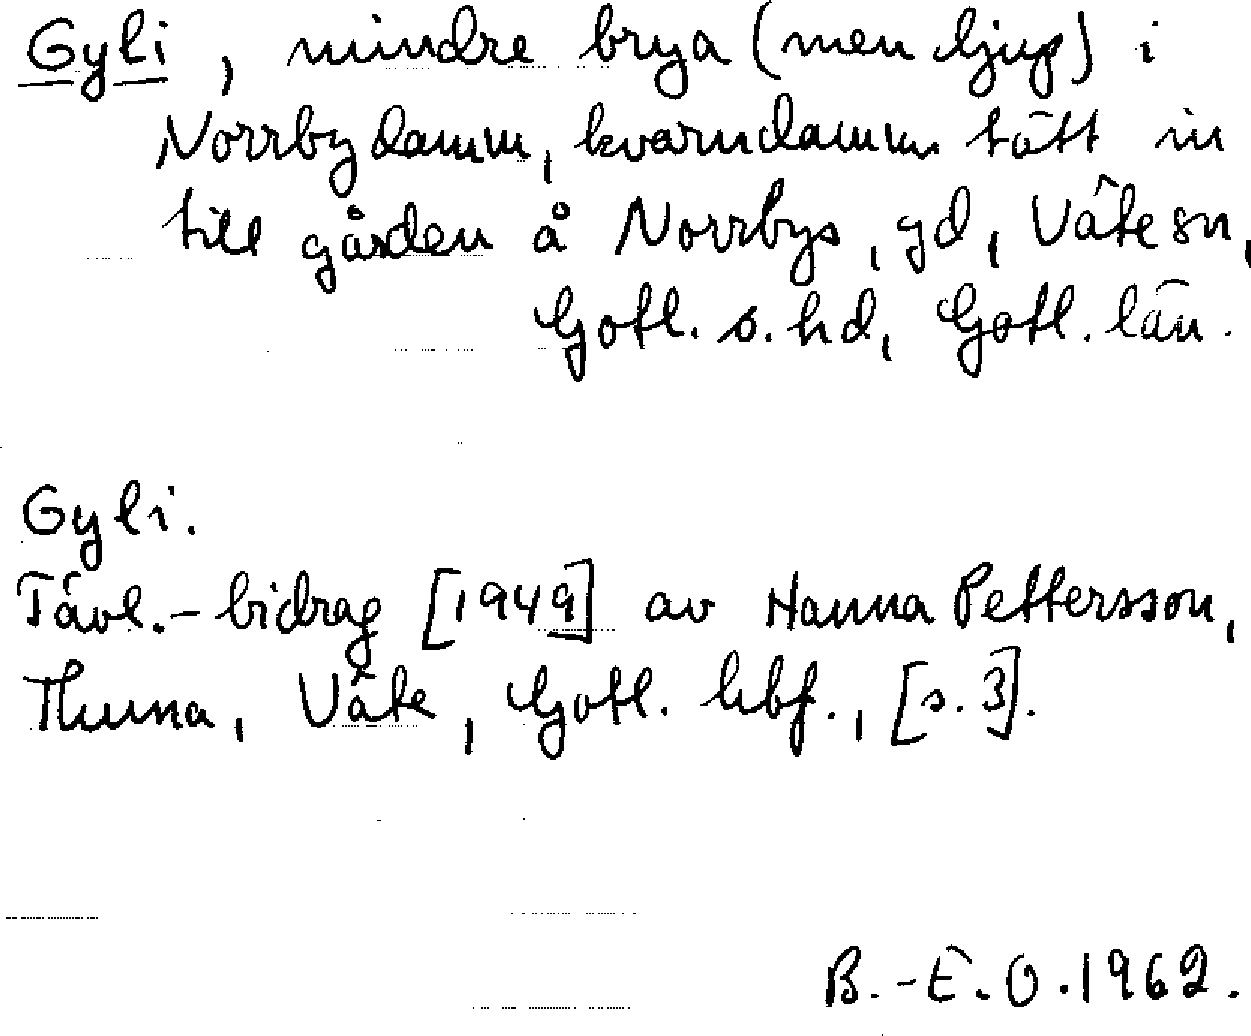 Gyli, mindre brya (men ljup) i
Norrbydamm, kvarndamm tätt in
till gården å Norrbys, gd, Väte sn,
Gotl. s. hd, Gotl. län.
Gyli.
Tävl.-bidrag [1949] av Hanna Pettersson,
Thuna, Väte, Gotl. hbf., [s. 3].
B.-E.O. 1962.